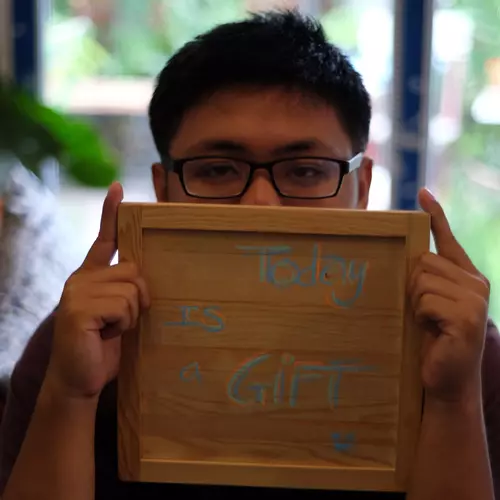 Today
is
a Gift